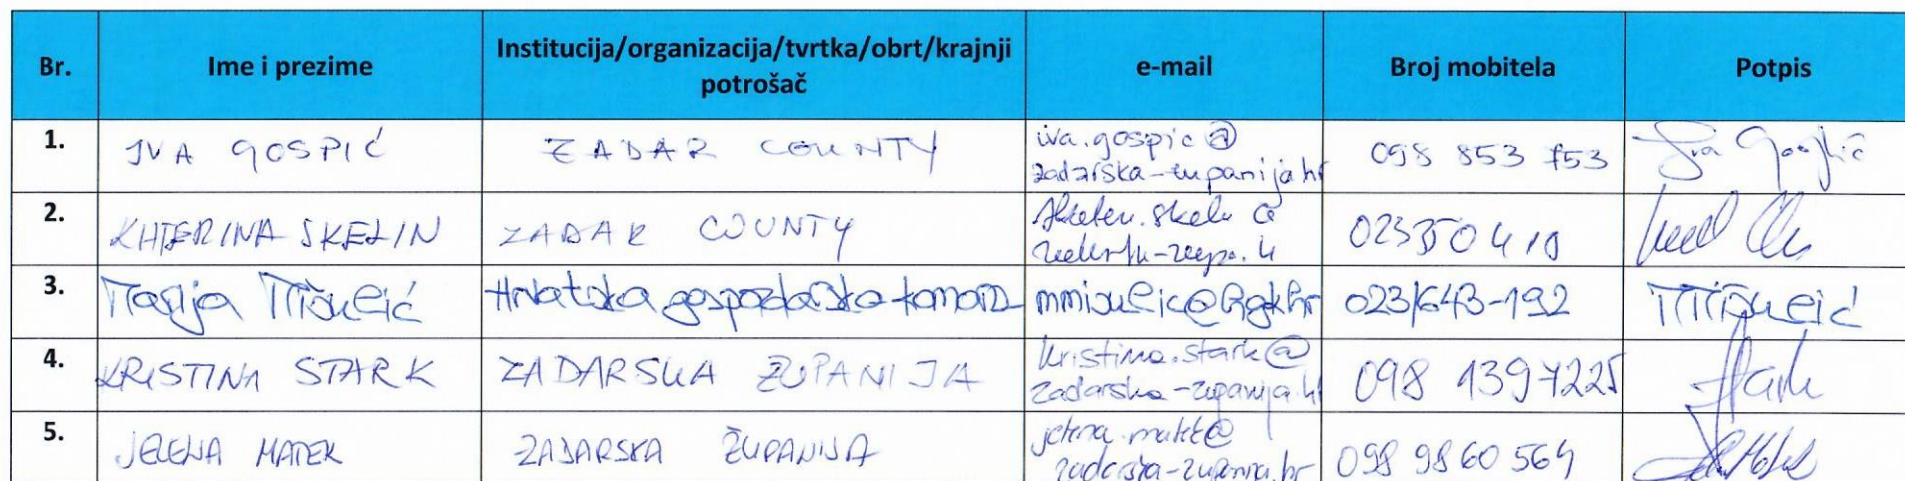 Br. Ime i prezime Institucija/organizacija/tvrtka/obrt/krajnji potrošač e-mail Broj mobitela Potpis
1. IVA GOSPIĆ ZADAR COUNTY iva.gospic@ 098 853 753 Iva Gospić
zadarska-zupanija.hr
2. KATERINA SKELIN ZADAR COUNTY 023350410
3. Marija Mišulić Hrvatska gospodarska komora mmisulic@hgk.hr 023/643-192 Mišulić
4. KRISTINA STARK ZADARSKA ŽUPANIJA kristina.stark@ 098 1397225 Stark
zadarska-zupanija.hr
5. JELENA MATEK ZADARSKA ŽUPANIJA 098 9860 564